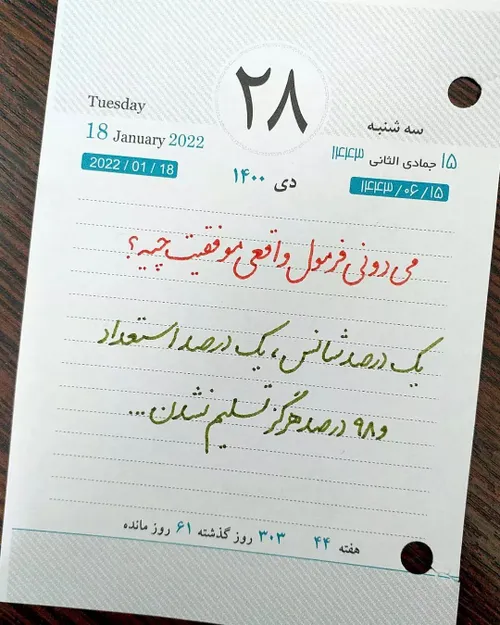 ۲۸
Tuesday
سه شنبه
18 January 2022
۱۵ جمادی الثانی ۱۴۴۳
2022 / 01 / 18
۱۴۴۳/۰۶/۱۵
دی ۱۴۰۰
می دونی فرمول واقعی موفقیت چیه؟
یک درصد شانس، یک درصد استعداد
و ۹۸ درصد هرگز تسلیم نشدن...
هفته ۴۴ ۳۰۳ روز گذشته ۶۱ روز مانده